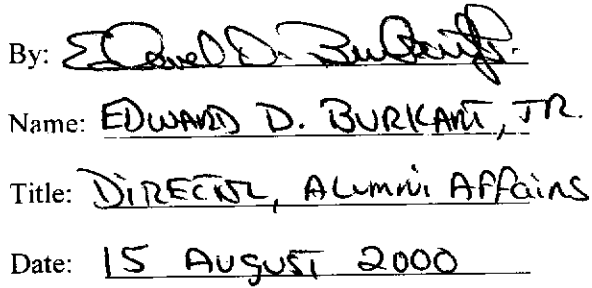 By: Edward D. Burkart Jr.
Name: EDWARD D. BURKART, JR.
Title: DIRECTOR, ALUMNI AFFAIRS
Date: 15 AUGUST 2000